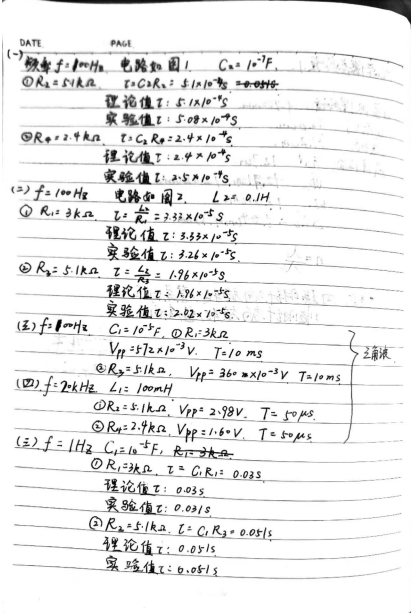 DATE PAGE
(一) 频率f=100Hz 电路如图1 C₂=10⁻⁷F.
①R₂=5.1kΩ τ=C₂R₂=5.1×10⁻⁴s =0.051s
理论值τ: 5.1×10⁻⁴s
实验值τ: 5.08×10⁻⁴s
②R₄=2.4kΩ τ=C₂R₄=2.4×10⁻⁴s
理论值τ: 2.4×10⁻⁴s
实验值τ: 2.5×10⁻⁴s
(二) f=100Hz 电路如图2. L₂=0.1H
① R₁=3kΩ τ=L₂/R₁=3.33×10⁻⁵s
理论值τ: 3.33×10⁻⁵s
实验值τ: 3.26×10⁻⁵s
② R₃=5.1kΩ τ=L₂/R₃=1.96×10⁻⁵s
理论值τ: 1.96×10⁻⁵s
实验值τ: 2.02×10⁻⁵s
(三) f=100Hz C₁=10⁻⁵F, ①R₁=3kΩ
Vpp=572×10⁻³V. T=10ms
②R₃=5.1kΩ, Vpp=360×10⁻³V T=10ms
三角波
(四) f=20kHz L₁=100mH
①R₂=5.1kΩ, Vpp=2.98V. T=50μs.
②R₄=2.4kΩ, Vpp=1.60V. T=50μs
(三) f=1Hz C₁=10⁻⁵F, R₁=3kΩ
① R₁=3kΩ, τ=C₁R₁=0.03s
理论值τ: 0.03s
实验值τ: 0.031s
② R₂=5.1kΩ. τ=C₁R₃=0.051s
理论值τ: 0.051s
实验值τ: 0.051s